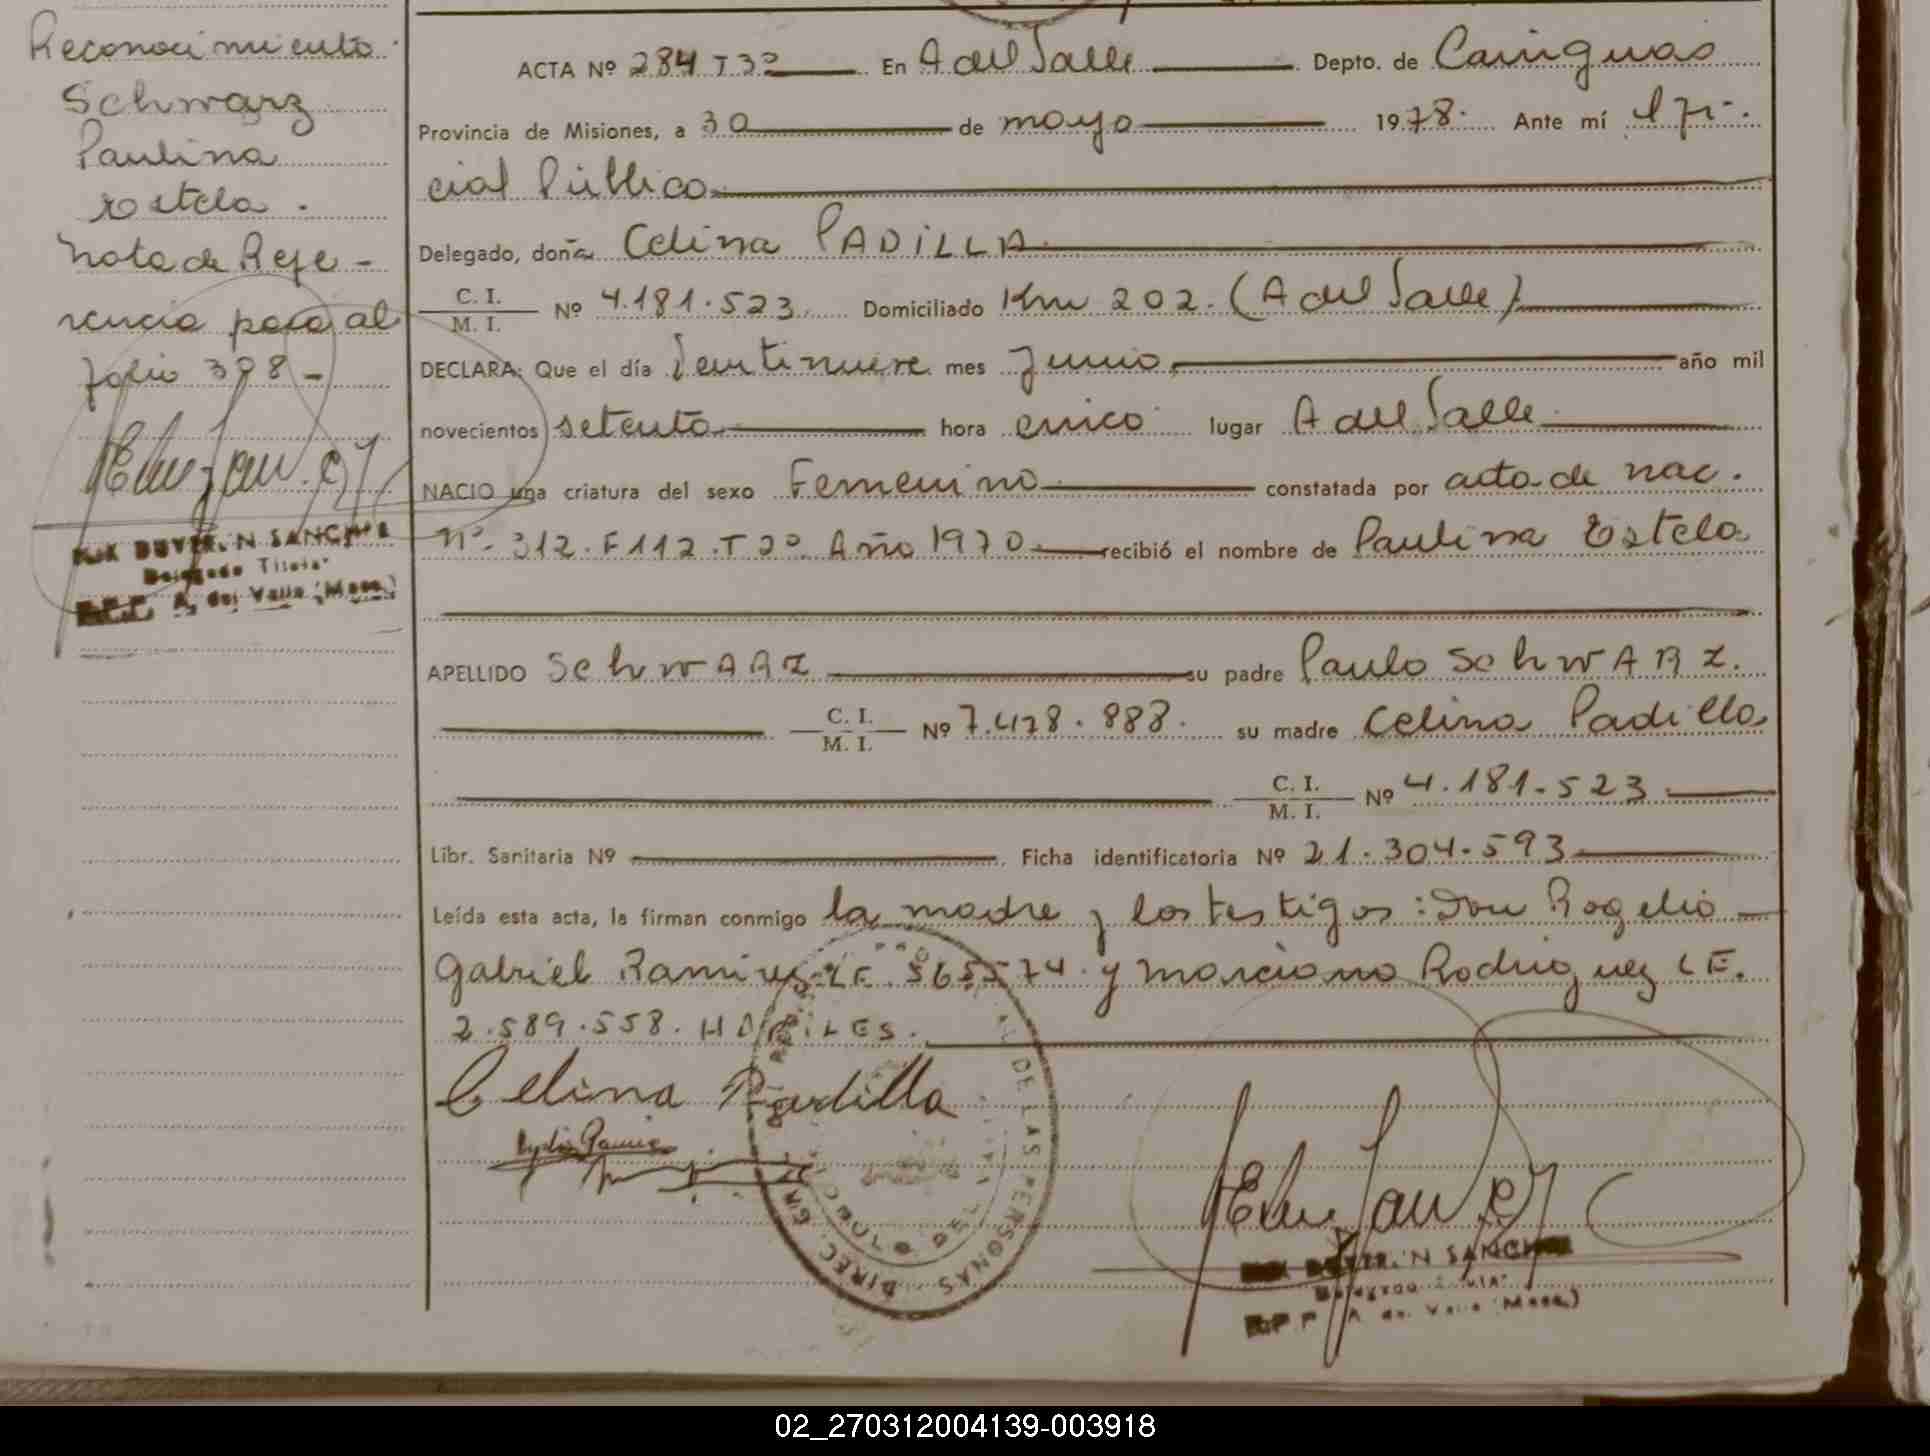 Reconocimiento
Schwarz
Paulina
Estela.
Nota de Refe-
rencia para al
folio 398-
ACTA Nº 284 T3º En A del Valle Depto. de Cainguas
Provincia de Misiones, a 30 de mayo 1978. Ante mí Ofi-
cial Público
Delegado, doña Celina PADILLA
C. I. M. I. Nº 4.181.523 Domiciliado Km 202. (A del Valle)
DECLARA: Que el día Veintinueve mes Junio año mil
novecientos setenta hora cinco lugar A del Valle
NACIO una criatura del sexo Femenino constatada por acta de nac.
Nº. 312. F112. T2º. Año 1970 recibió el nombre de Paulina Estela
APELLIDO SchwARZ su padre Paulo SchwARZ.
C. I. M. I. Nº 7.478.888. su madre Celina Padilla
C. I. M. I. Nº 4.181.523
Libr. Sanitaria Nº Ficha identificatoria Nº 21.304.593
Leída esta acta, la firman conmigo la madre y los testigos: Don Rogelio
Gabriel Ramirez LE. 565574. y Marciano Rodriguez LE.
2.589.558. HABILES.
Celina Padilla
DIREC. GRAL DE LAS PERSONAS
SANCHEZ
Delegado Titular
R.P.P. A. del Valle (Mnes.)
02_270312004139-003918